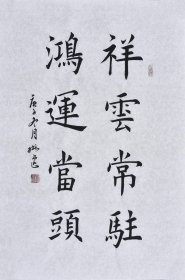 祥雲常駐
鴻運當頭